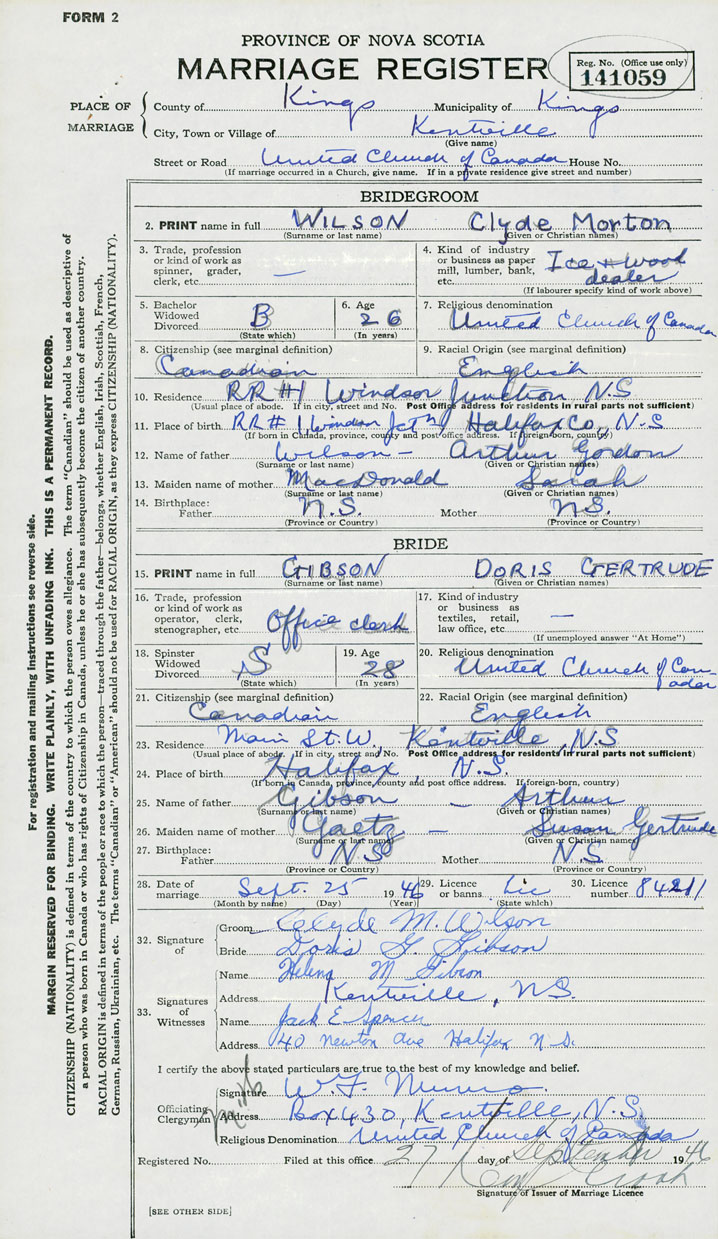 FORM 2
PROVINCE OF NOVA SCOTIA
MARRIAGE REGISTER
Reg. No. (Office use only)
141059
PLACE OF MARRIAGE
County of Kings Municipality of Kings
City, Town or Village of Kentville
(Give name)
Street or Road United Church of Canada House No.
(If marriage occurred in a Church, give name. If in a private residence give street and number)
BRIDEGROOM
2. PRINT name in full WILSON Clyde Morton
(Surname or last name) (Given or Christian names)
3. Trade, profession or kind of work as spinner, grader, clerk, etc. —
4. Kind of industry or business as paper mill, lumber, bank, etc. Ice + wood dealer
(If labourer specify kind of work above)
5. Bachelor Widowed Divorced B
(State which)
6. Age 26
(In years)
7. Religious denomination
United Church of Canada
8. Citizenship (see marginal definition)
Canadian
9. Racial Origin (see marginal definition)
English
10. Residence RR #1 Windsor Junction N.S
(Usual place of abode. If in city, street and No. Post Office address for residents in rural parts not sufficient)
11. Place of birth RR #1 Windsor Jctn Halifax Co, N.S
(If born in Canada, province, county and post office address. If foreign-born, country)
12. Name of father Wilson - Arthur Gordon
(Surname or last name) (Given or Christian names)
13. Maiden name of mother MacDonald Sarah
(Surname or last name) (Given or Christian names)
14. Birthplace: Father N.S. Mother N.S.
(Province or Country) (Province or Country)
BRIDE
15. PRINT name in full GIBSON DORIS GERTRUDE
(Surname or last name) (Given or Christian names)
16. Trade, profession or kind of work as operator, clerk, stenographer, etc. Office clerk
17. Kind of industry or business as textiles, retail, law office, etc. —
(If unemployed answer "At Home")
18. Spinster Widowed Divorced S
(State which)
19. Age 28
(In years)
20. Religious denomination
United Church of Canada
21. Citizenship (see marginal definition)
Canadian
22. Racial Origin (see marginal definition)
English
23. Residence Main St. W. Kentville, N.S
(Usual place of abode. If in city, street and No. Post Office address for residents in rural parts not sufficient)
24. Place of birth Halifax, N.S.
(If born in Canada, province, county and post office address. If foreign-born, country)
25. Name of father Gibson - Arthur
(Surname or last name) (Given or Christian names)
26. Maiden name of mother Gaetz - Susan Gertrude
(Surname or last name) (Given or Christian names)
27. Birthplace: Father N.S Mother N.S
(Province or Country) (Province or Country)
28. Date of marriage Sept. 25 1946
(Month by name) (Day) (Year)
29. Licence or banns Lic
(State which)
30. Licence number 84211
32. Signature of
Groom Clyde M. Wilson
Bride Doris G. Gibson
33. Signatures of Witnesses
Name Helena M Gibson
Address Kentville, N.S.
Name Jack E Spencer
Address 40 Newton Ave Halifax N.S.
I certify the above stated particulars are true to the best of my knowledge and belief.
Officiating Clergyman
Signature W. F. Munro
Address Box 430, Kentville, N.S.
Religious Denomination United Church of Canada
Registered No. Filed at this office 27 day of September 1946
Signature of Issuer of Marriage Licence
[SEE OTHER SIDE]
For registration and mailing instructions see reverse side.
MARGIN RESERVED FOR BINDING. WRITE PLAINLY, WITH UNFADING INK. THIS IS A PERMANENT RECORD.
CITIZENSHIP (NATIONALITY) is defined in terms of the country to which the person owes allegiance. The term "Canadian" should be used as descriptive of
a person who was born in Canada or who has rights of Citizenship in Canada, unless he or she has subsequently become the citizen of another country.
RACIAL ORIGIN is defined in terms of the people or race to which the person—traced through the father—belongs, whether English, Irish, Scottish, French,
German, Russian, Ukrainian, etc. The terms "Canadian" or "American" should not be used for RACIAL ORIGIN, as they express CITIZENSHIP (NATIONALITY).